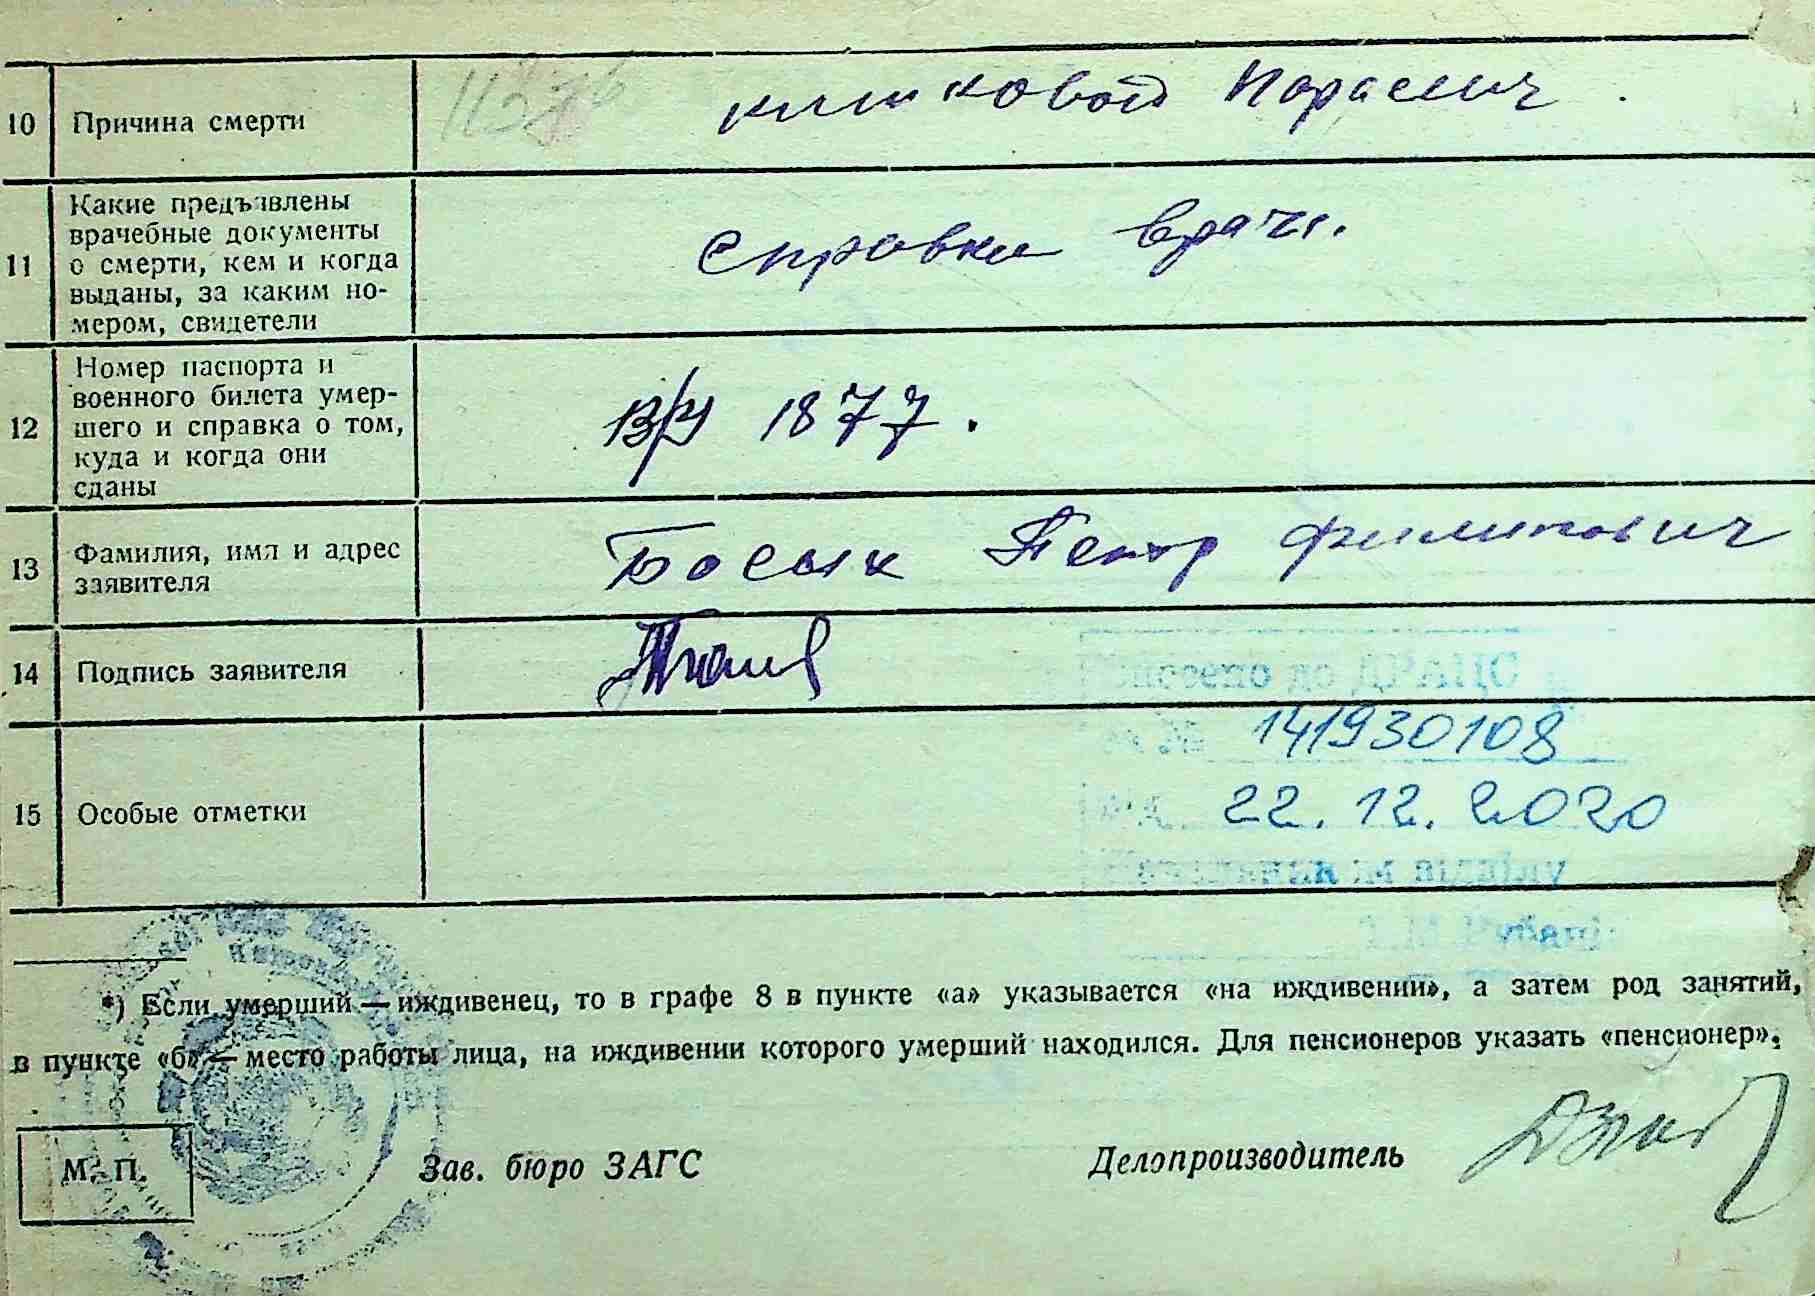 10 Причина смерти кишковой Парасич.
11 Какие предъявлены
врачебные документы
о смерти, кем и когда
выданы, за каким но-
мером, свидетели
справки врач.
12 Номер паспорта и
военного билета умер-
шего и справка о том,
куда и когда они
сданы
1877.
13 Фамилия, имя и адрес
заявителя
Босых Петр Филипович
14 Подпись заявителя
до ДРАЦС
№ 141930108
15 Особые отметки
22.12.2020
відділу
*) Если умерший — иждивенец, то в графе 8 в пункте «а» указывается «на иждивении», а затем род занятий,
в пункте «б» — место работы лица, на иждивении которого умерший находился. Для пенсионеров указать «пенсионер».
М. П. Зав. бюро ЗАГС Делопроизводитель